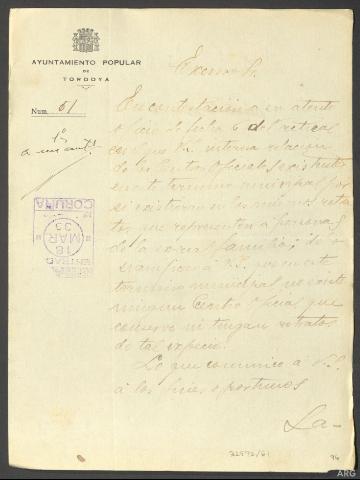 AYUNTAMIENTO POPULAR
DE
TORDOYA
Num. 61
Excmo Sr.
En contestacion a su atento
oficio de fecha 6 del actual
con que V.E. interesa relacion
de los Centros Oficiales existentes
en este termino municipal por
si existieran en los mismos retra
tos que representen a personas
de la familia
a V.E. que en este
termino municipal no existe
ningun Centro Oficial que
conserve ni tengan retratos
de tal especie.
Lo que comunico á V.E.
á los fines oportunos
La-
ENTRADA
18
MAR
35
CORUÑA
32592/61
96
ARG